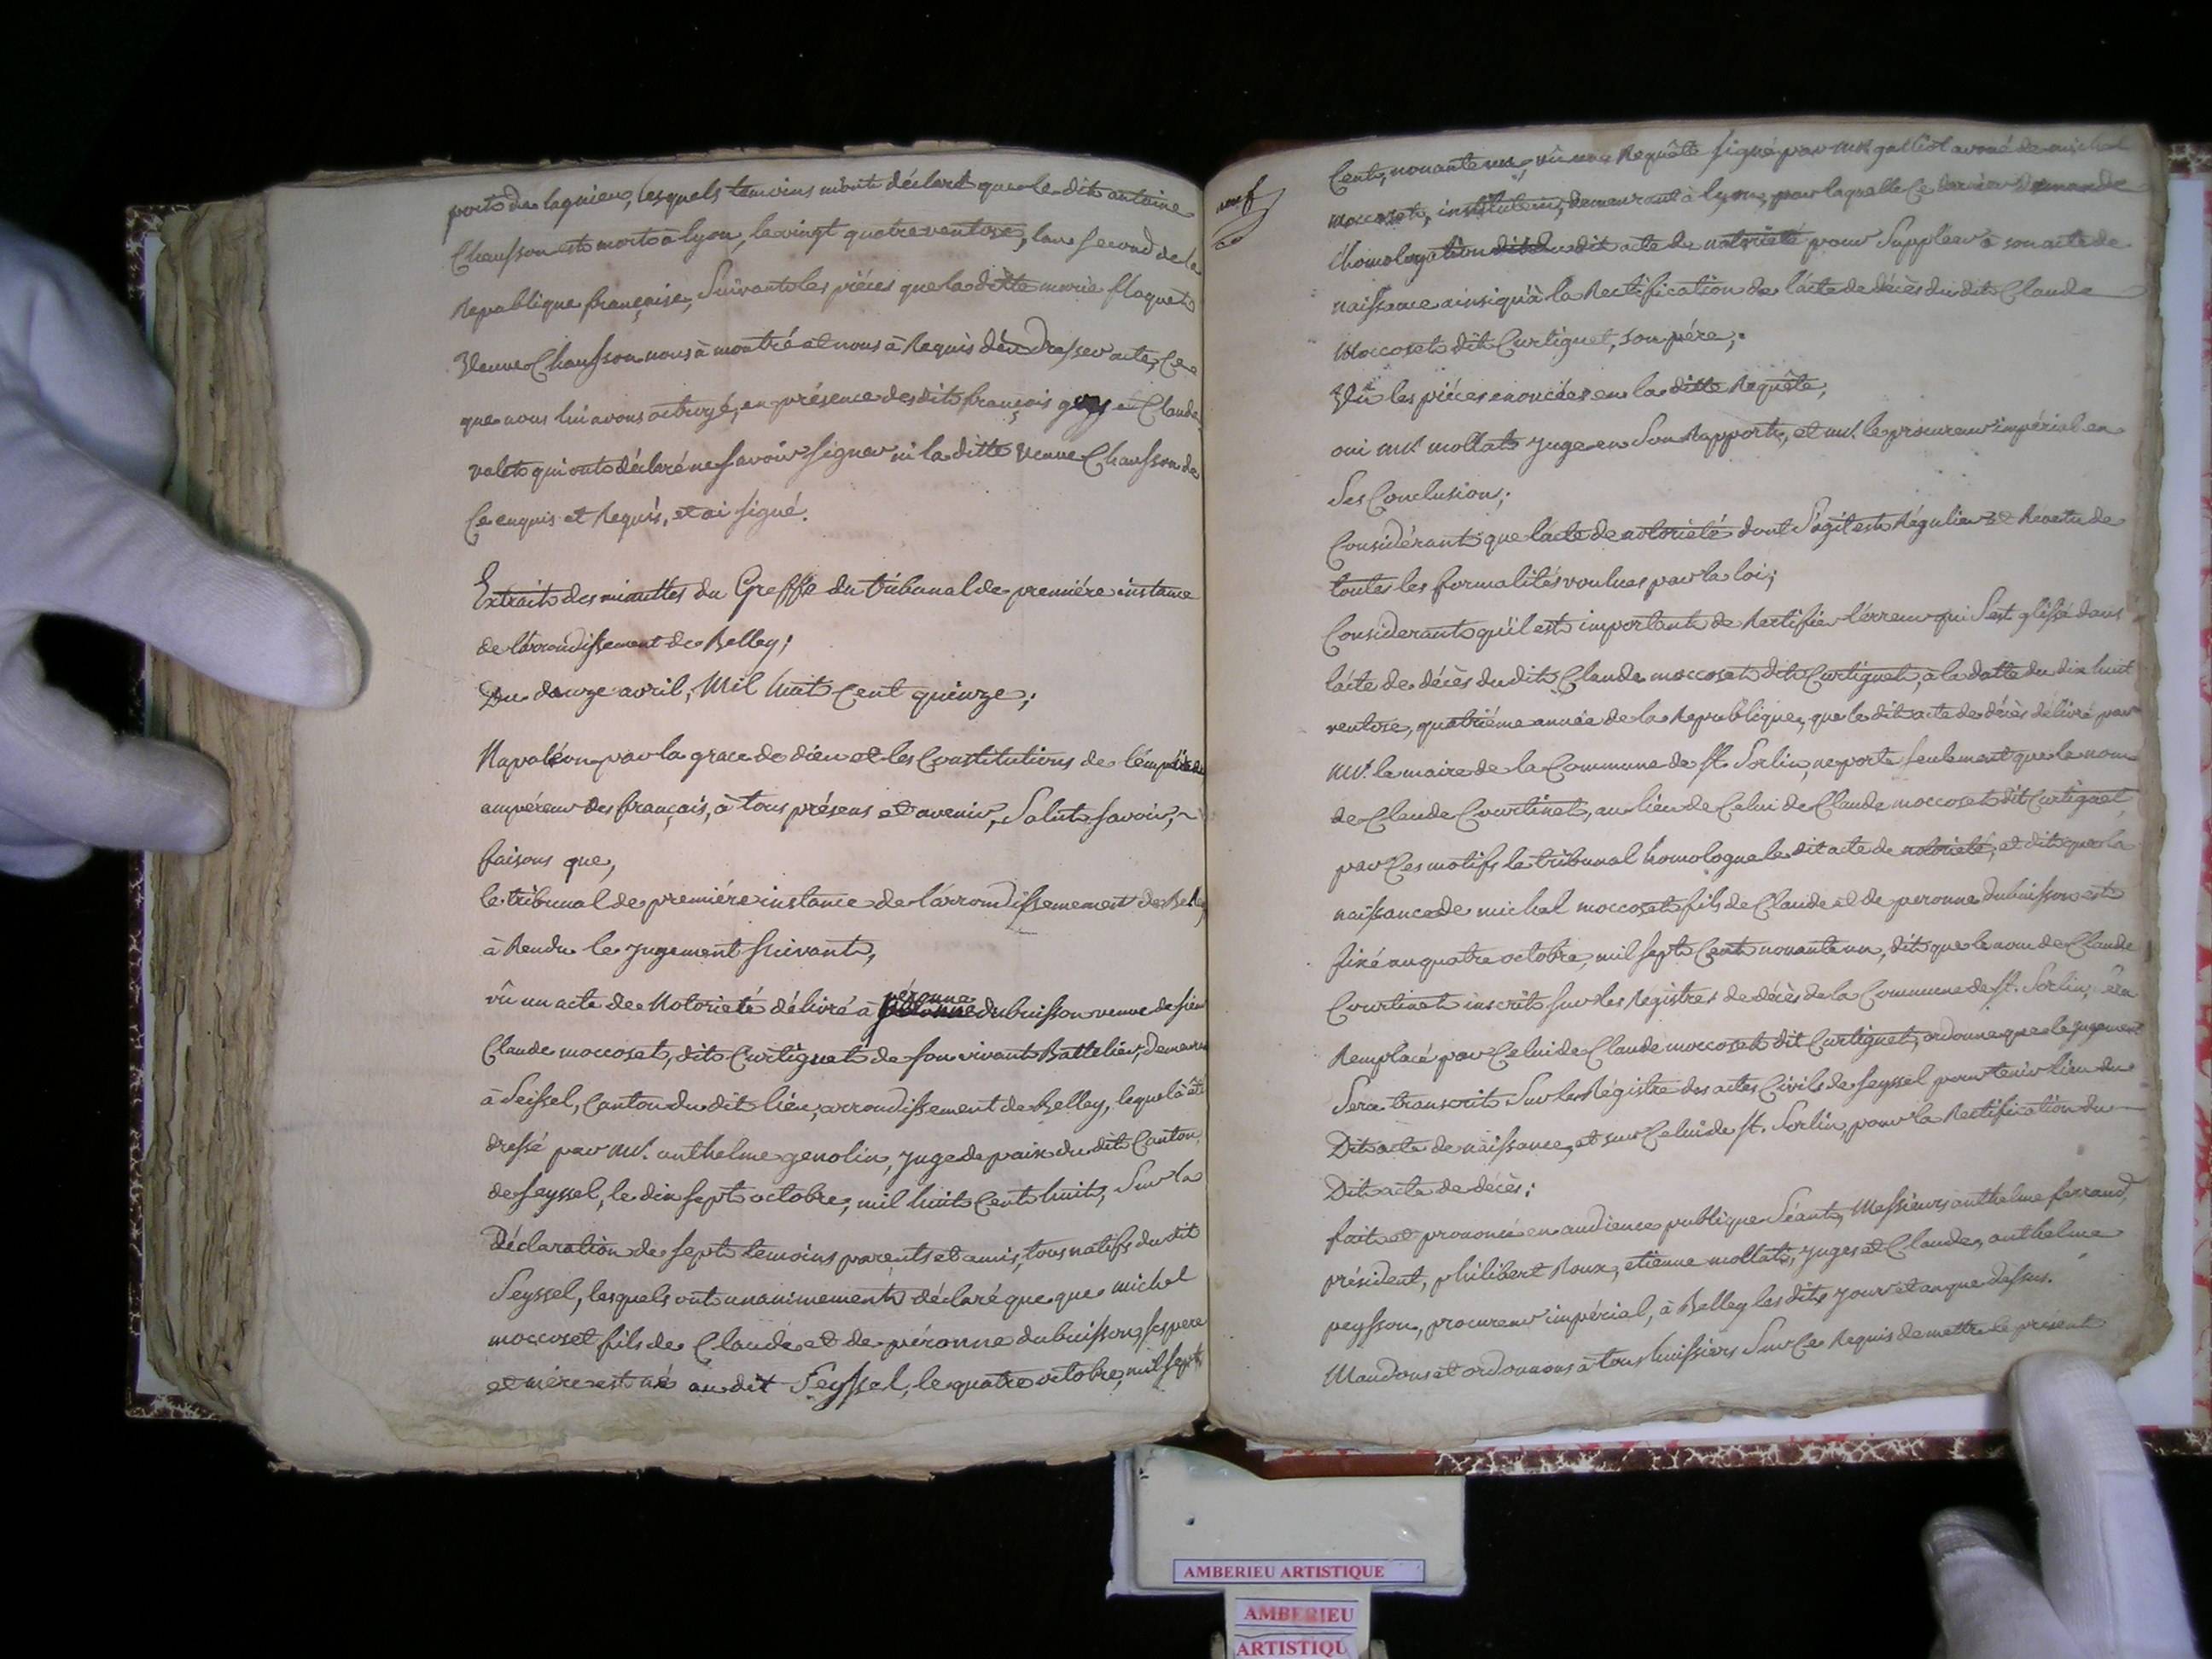 porte de lagnieu, lesquels temoins m'ônt déclaré que le dit antoine
Chausson est mort à lyon, le vingt quatre ventose, lan second de la
Republique française, Suivant les piéces que la ditte marie flaquet
Veuve Chausson nous à montré et nous à Requis d'en dresser acte, Ce
que nous lui avons octroyé, en présence des dits françois guy et Claude
valet qui ont déclaré ne savoir signer ni la ditte veuve Chausson de
Ce enquis et Requis, et ai signé.
Extrait des minuttes du Greffe du tribunal de premiére instance
de l'arrondissement de Belley;
Du douze avril, Mil huit Cent quinze;
Napoléon par la grace de dieu et les Constitutions de l'empire
empéreur des français, à tous présens et avenir, Salut savoir,
faisons que,
le tribunal de premiére instance de l'arrondissemement de Belley
à Rendu le jugement suivant,
vû un acte de Notorieté délivré à péronne dubuisson veuve de sieur
Claude moccoset, dit Curtignet de son vivant Battelier, demeurant
à Seissel, Canton du dit lieu, arrondissement de Belley, lequel à été
dressé par Mr. anthelme genolin, juge de paix du dit Canton
de seyssel, le dix sept octobre, mil huit Cent huit, Sur la
Déclaration de sept temoins parents et amis, tous natifs du dit
Seyssel, lesquels ont unanimement déclaré que que michel
moccoset fils de Claude et de péronne dubuisson, ses pere
et mére est né au dit Seyssel, le quatre octobre, mil sept
neuf
Cent, nonante un, vû une Requête signé par Mr. galliot avoué de michel
moccoset, instituteur, demeurant à lyon, par laquelle Ce dernier demande
l'homologation dudit acte de notorieté pour Suppléer à son acte de
naissance ainsi qu'à la Rectification de l'acte de décès du dit Claude
Moccoset dit Curtignet, son pére;
Vû les piéces enoncées en la ditte Requête,
oui Mr. mollat juge en Son Rapport, et Mr. le procureur impérial en
Ses Conclusions;
Considérant que lacte de notorieté dont S'agit est Régulier et Revetu de
toutes les formalités voulues par la loi;
Considerant qu'il est important de Rectifier l'erreur qui S'est glissé dans
l'acte de décès du dit Claude moccoset dit Curtignet, à la datte du dix huit
ventose, quatriéme année de la Republique, que le dit acte de décès délivré par
Mr. le maire de la Commune de St. Sorlin, ne porte seulement que le nom
de Claude Courtinet, au lieu de Celui de Claude moccoset dit Curtignet
par Ces motifs le tribunal homologue le dit acte de notorieté, et dit que la
naissance de michel moccoset fils de Claude et de peronne dubuisson est
fixé au quatre octobre, mil sept Cent nonante un, dit que le nom de Claude
Courtinet inscrit sur les Régistres de décès de la Commune de St. Sorlin, sera
Remplacé par Celui de Claude moccoset dit Curtignet, ordonne que le jugement
Sera transcrit Sur le Régistre des actes Civils de seyssel pour tenir lieu du
Dit acte de naissance, et sur Celui de St. Sorlin, pour la Rectification du
Dit acte de décès;
fait et prononcé en audience publique Séants, Messieurs anthelme ferrand,
président, philibert Roux, etienne mollat, juges et Claude, anthelme
peysson, procureur impérial, à Belley les dits jour et an que dessus.
Mandons et ordonnons à tous huissiers Sur Ce Requis de mettre le présent
AMBERIEU ARTISTIQUE
AMBERIEU
ARTISTIQU